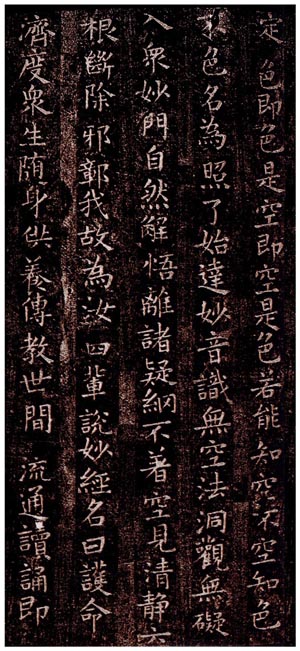 定色即色是空即空是色若能知空不空知色
不色名為照了始達妙音識無空法洞觀無礙
入衆妙門自然解悟離諸疑網不著空見清静六
根斷除邪鄣我故為汝四輩說妙經名曰護命
濟度衆生随身供養傳教世間 流通讀誦即